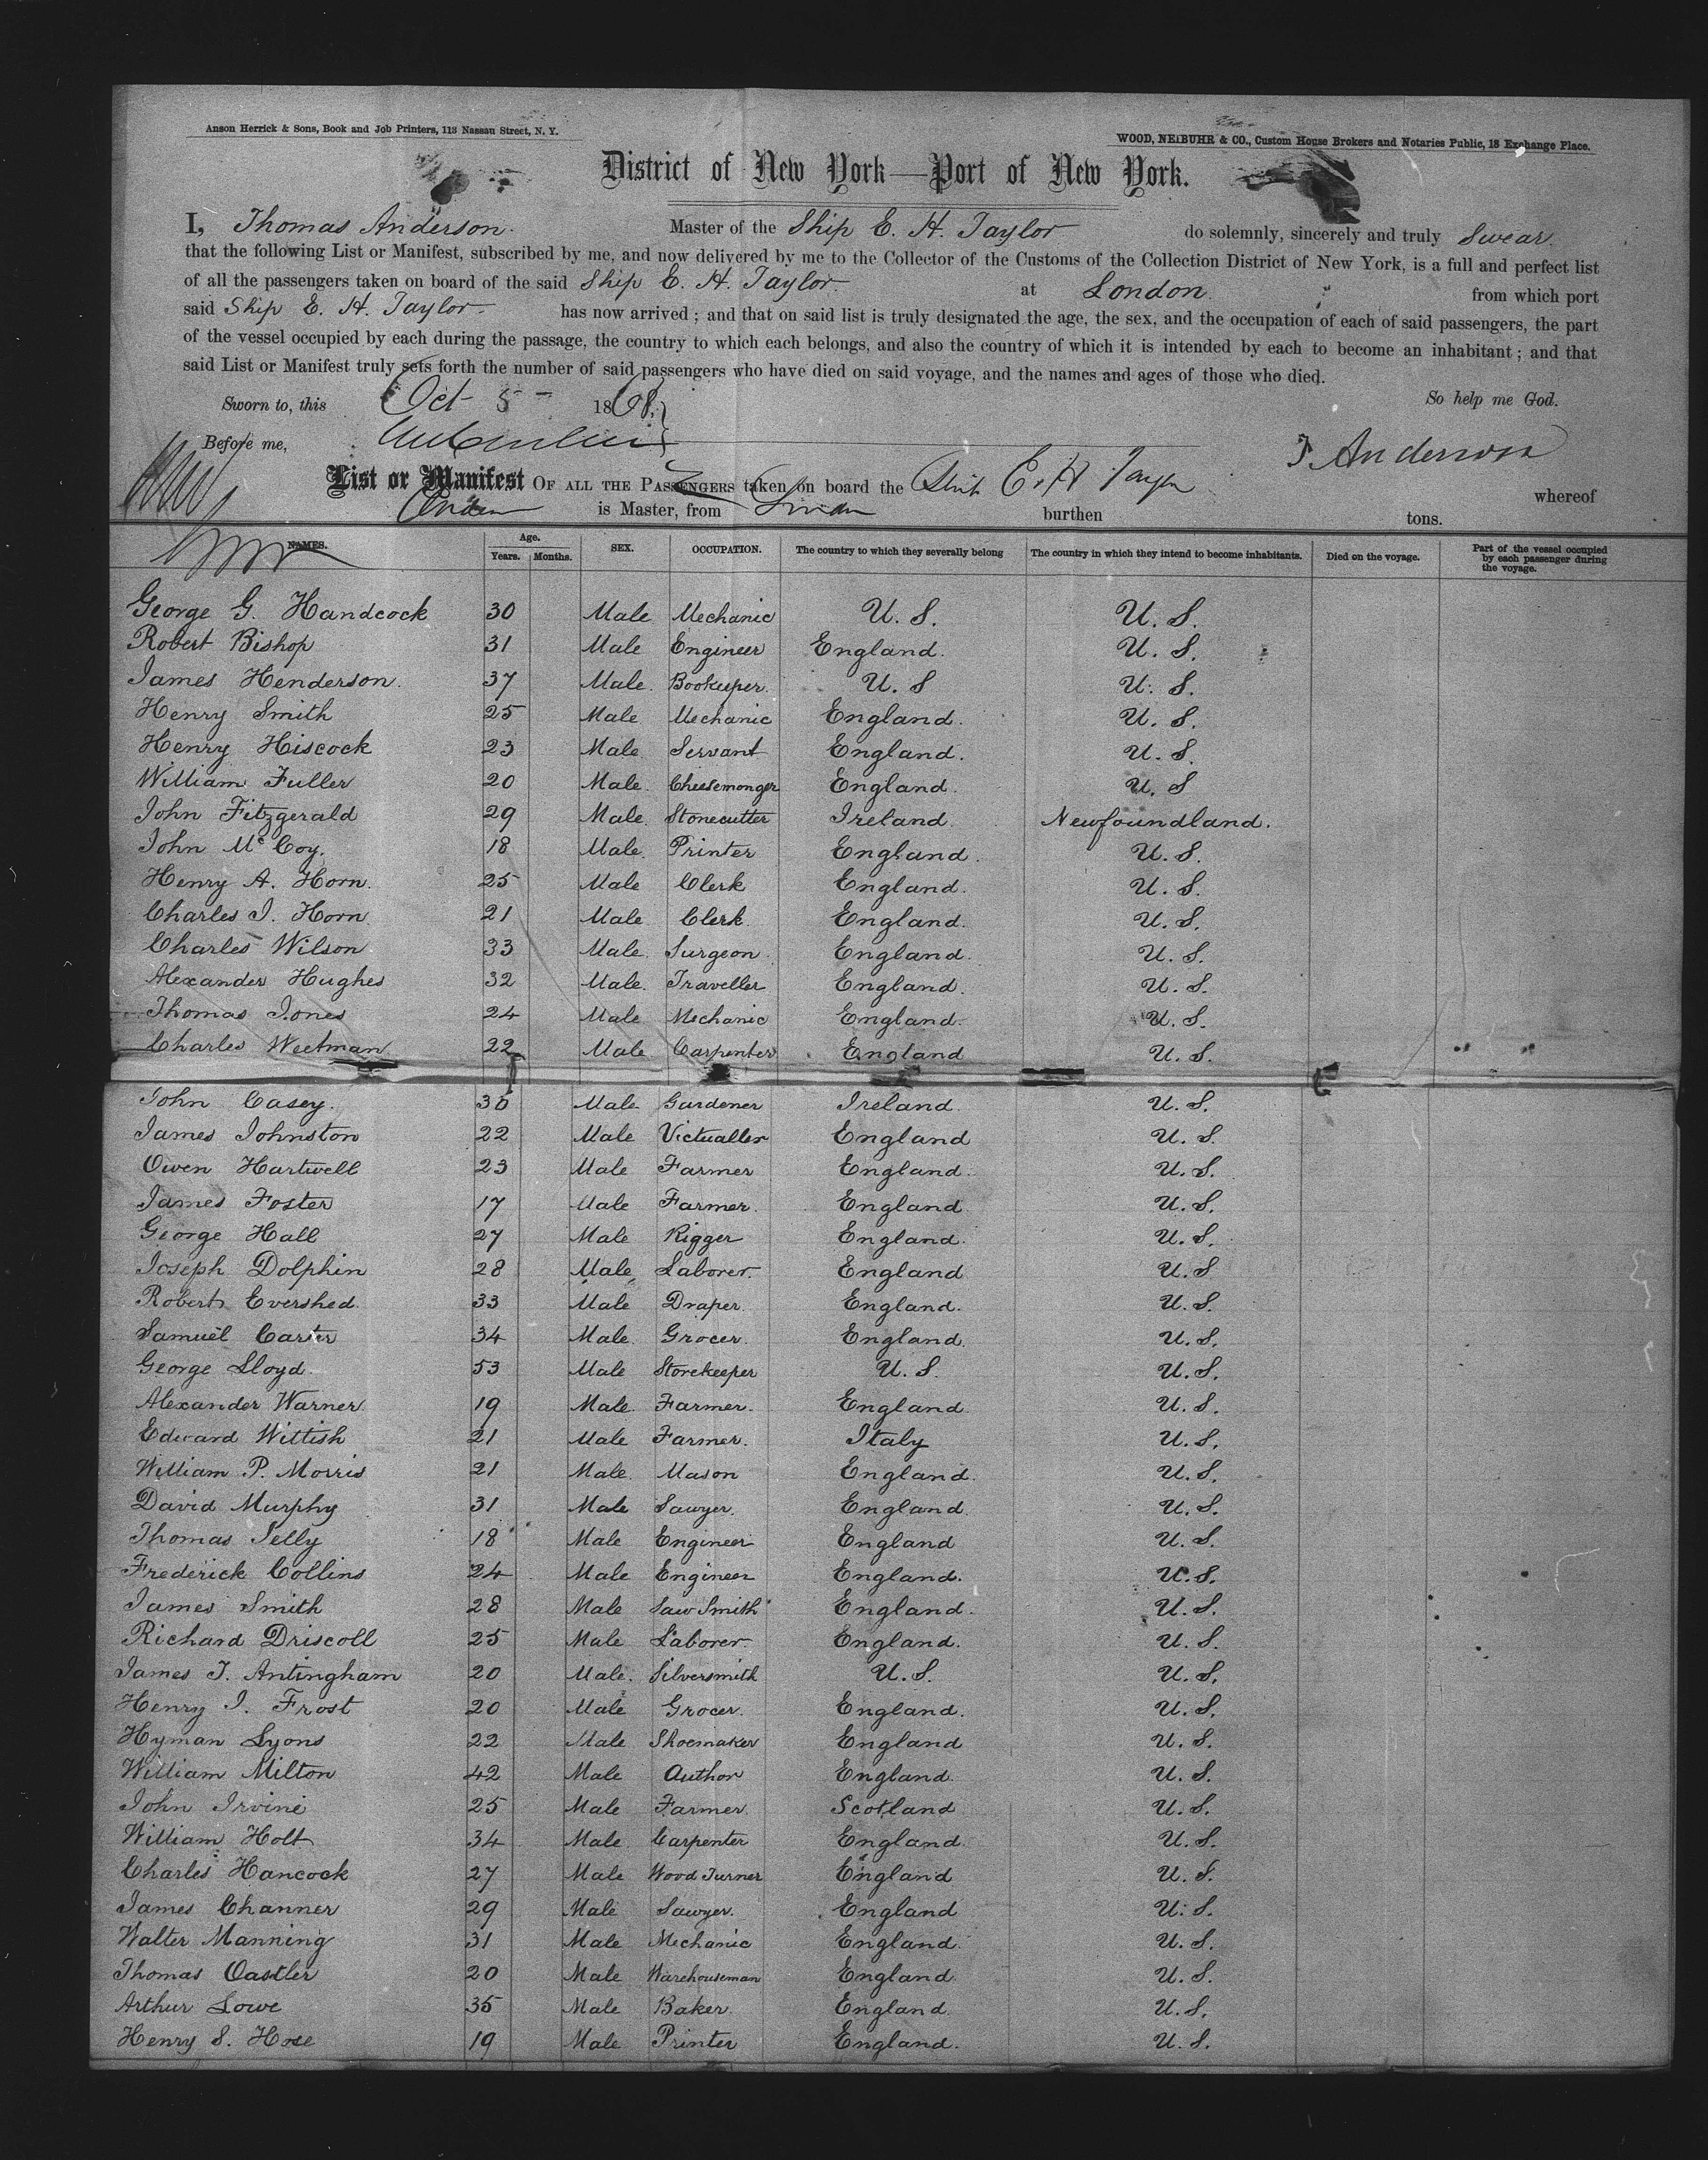 Anson Herrick & Sons, Book and Job Printers, 113 Nassau Street, N. Y.
WOOD, NEIBUHR & CO., Custom House Brokers and Notaries Public, 18 Exchange Place.
District of New York—Port of New York.
I, Thomas Anderson. Master of the Ship E. H. Taylor do solemnly, sincerely and truly Swear
that the following List or Manifest, subscribed by me, and now delivered by me to the Collector of the Customs of the Collection District of New York, is a full and perfect list
of all the passengers taken on board of the said Ship E. H. Taylor. at London. from which port
said Ship E. H. Taylor. has now arrived; and that on said list is truly designated the age, the sex, and the occupation of each of said passengers, the part
of the vessel occupied by each during the passage, the country to which each belongs, and also the country of which it is intended by each to become an inhabitant; and that
said List or Manifest truly sets forth the number of said passengers who have died on said voyage, and the names and ages of those who died.
Sworn to, this Oct 5 - 1868. So help me God.
Before me, T Anderson
List or Manifest OF ALL THE PASSENGERS taken on board the Ship E. H Taylor whereof
is Master, from London burthen tons.
NAMES. Age. Years. Months. SEX. OCCUPATION. The country to which they severally belong The country in which they intend to become inhabitants. Died on the voyage. Part of the vessel occupied by each passenger during the voyage.
George G. Handcock 30 Male Mechanic U. S. U. S.
Robert Bishop 31 Male Engineer England. U. S.
James Henderson. 37 Male. Bookeeper. U. S U. S.
Henry Smith 25 Male Mechanic England. U. S.
Henry Hiscock 23 Male Servant England. U. S.
William Fuller 20 Male. Cheesemonger England. U. S
John Fitzgerald 29 Male. Stonecutter Ireland Newfoundland.
John Mc Coy. 18 Male. Printer England. U. S.
Henry A. Horn. 25 Male Clerk England. U. S.
Charles J. Horn 21 Male Clerk England. U. S.
Charles Wilson 33 Male. Surgeon England. U. S.
Alexander Hughes 32 Male. Traveller England. U. S.
Thomas Jones 24 Male Mechanic England. U. S.
Charles Weetman 22 Male Carpenter England U. S.
John Casey. 30 Male Gardener Ireland U. S.
James Johnston 22 Male Victualler England U. S.
Owen Hartwell 23 Male Farmer England. U. S.
James Foster 17 Male Farmer. England U. S.
George Hall 27 Male Rigger England. U. S.
Joseph Dolphin 28 Male Laborer. England U. S
Robert Evershed. 33 Male Draper. England. U. S.
Samuel Carter 34 Male. Grocer. England. U. S.
George Lloyd. 53 Male Storekeeper U. S. U. S.
Alexander Warner 19 Male Farmer. England U. S.
Edward Wittish 21 Male Farmer. Italy U. S.
William P. Morris 21 Male. Mason England. U. S.
David Murphy 31 Male Sawyer. England. U. S.
Thomas Selly 18 Male Engineer England U. S.
Frederick Collins 24 Male Engineer England. U. S.
James Smith 28 Male Saw Smith England. U. S.
Richard Driscoll 25 Male Laborer. England. U. S.
James T. Antingham 20 Male. Silversmith U. S. U. S.
Henry J. Frost 20 Male Grocer. England. U. S.
Hyman Lyons 22 Male Shoemaker England U. S.
William Milton 42 Male Author England U. S.
John Irvine 25 Male Farmer. Scotland U. S.
William Holt 34 Male Carpenter England U. S.
Charles Hancock 27 Male Wood Turner England U. S.
James Channer 29 Male Sawyer. England U. S.
Walter Manning 31 Male Mechanic England U. S.
Thomas Oastler 20 Male Warehouseman England U. S.
Arthur Lowe 35 Male Baker England U. S.
Henry S. Hose 19 Male Printer England. U. S.